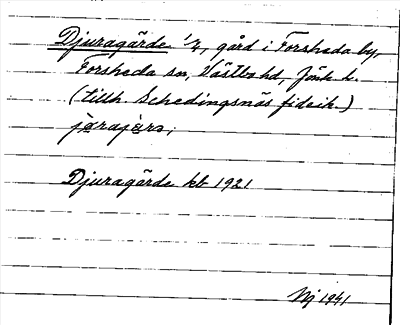 Djuragärde 1/2, gård i Forsheda by,
Forsheda sn, Västbo hd, Jönk. l.
(tillh. Schedingsnäs fideik.)
jɷrajɷ̀rə,
Djuragärde kb 1921
Nj 1941